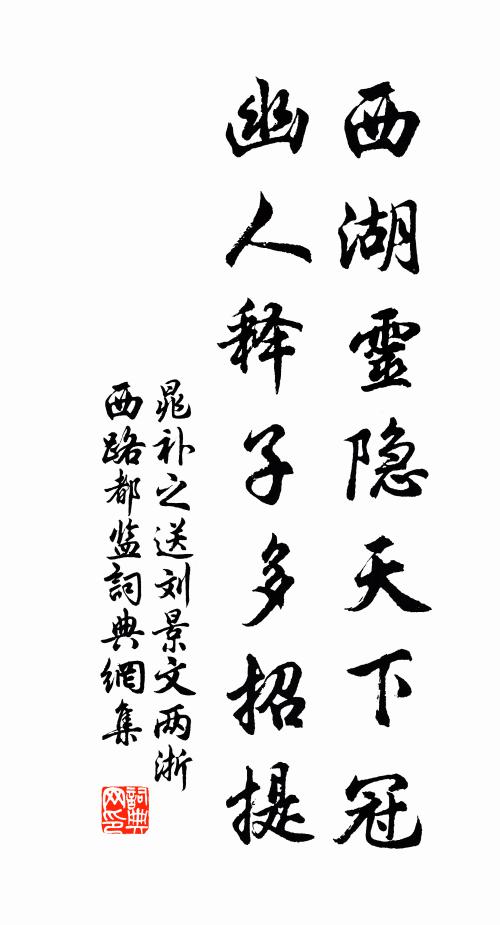 西湖靈隐天下冠
幽人释子多招提
晁补之送刘景文两浙
西路都监詞典網集
詞典
网印